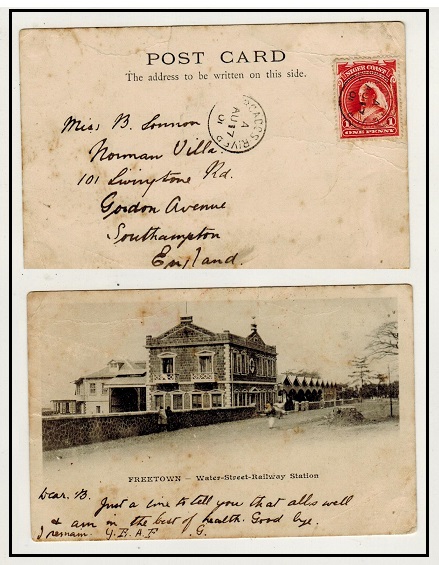 POST CARD
The address to be written on this side.
NIGER COAST
1 ONE PENNY 1
RIVER
A
AU 17
01
Miss B. Lonnon
Norman Villa.
101 Livingstone Rd.
Gordon Avenue
Southampton
England.
FREETOWN – Water-Street-Railway Station
Dear. B. Just a line to tell you that all is well
& am in the best of health. Good bye.
I remain. Y.B.A.F G.